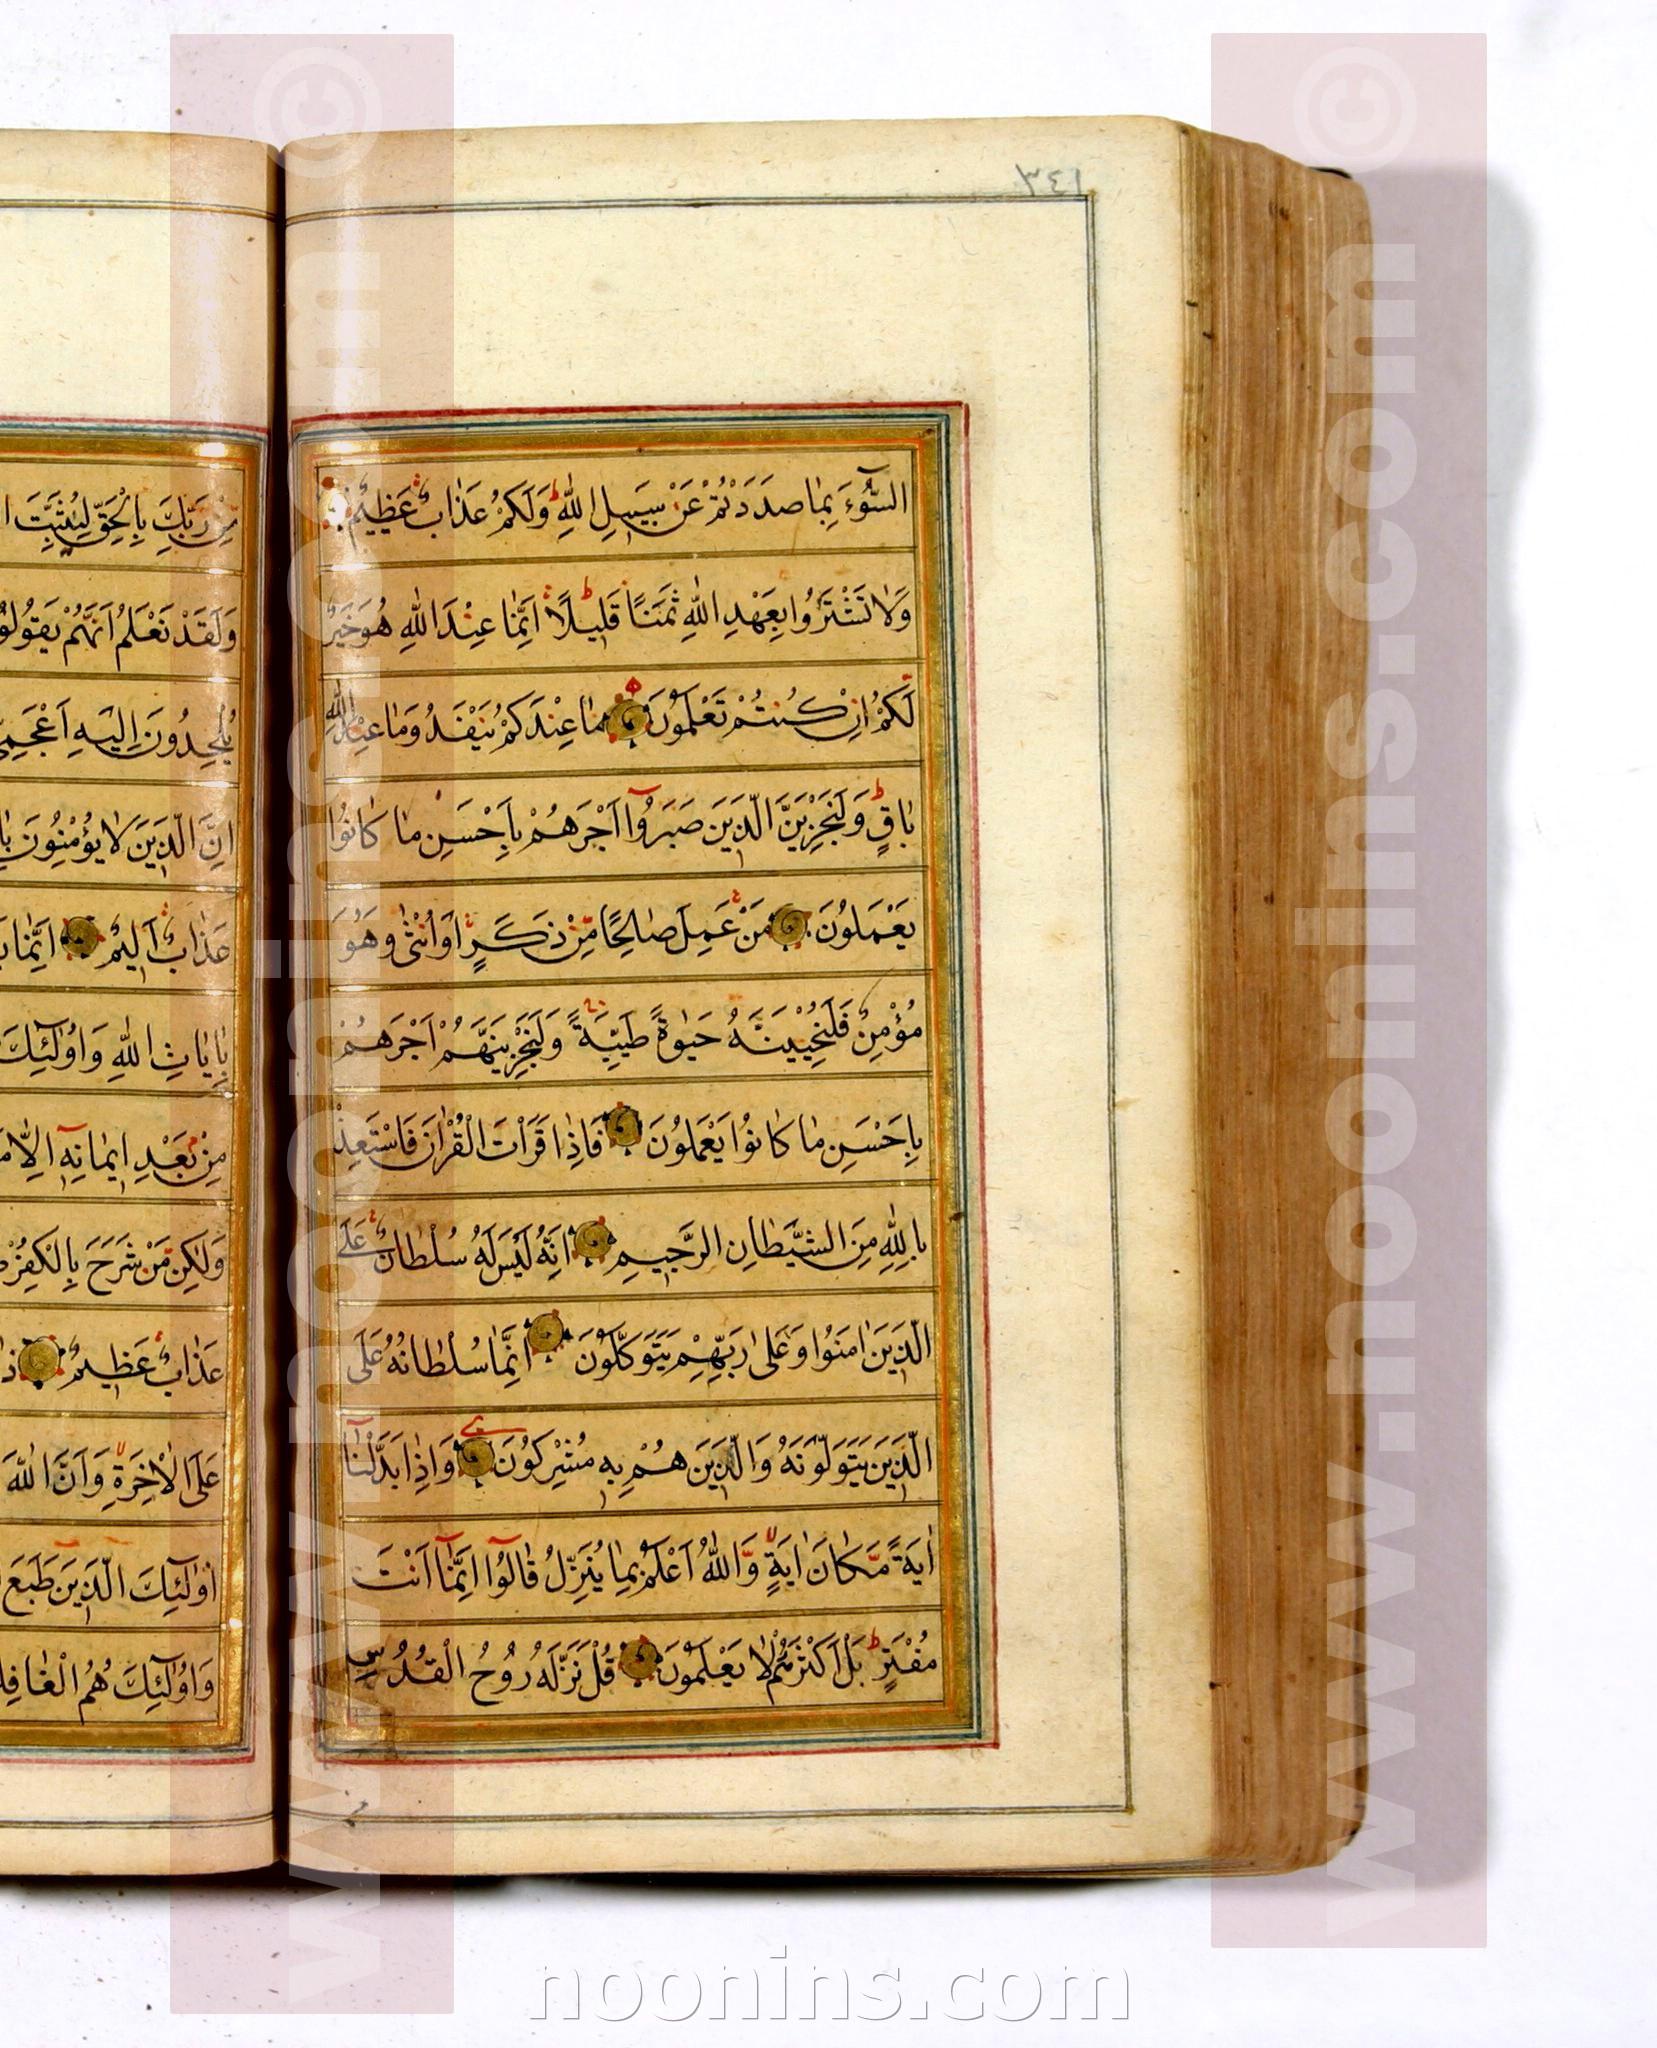 ٣٤١
السُّوٓءَ بِمٰا صَدَدْتُمْ عَنْ سَبِيلِ اللّٰهِ وَلَكُمْ عَذٰابٌ عَظِيمٌ
وَلٰا تَشْتَرُوا بِعَهْدِ اللّٰهِ ثَمَنًا قَلِيلًا اِنَّمٰا عِنْدَ اللّٰهِ هُوَ خَيْرٌ
لَكُمْ اِنْ كُنْتُمْ تَعْلَمُونَ مٰا عِنْدَكُمْ يَنْفَدُ وَمٰا عِنْدَ اللّٰهِ
بٰاقٍ وَلَنَجْزِيَنَّ الَّذِينَ صَبَرُوٓا اَجْرَهُمْ بِاَحْسَنِ مٰا كٰانُوا
يَعْمَلُونَ مَنْ عَمِلَ صٰالِحًا مِنْ ذَكَرٍ اَوْ اُنْثٰى وَهُوَ
مُؤْمِنٌ فَلَنُحْيِيَنَّهُ حَيٰوةً طَيِّبَةً وَلَنَجْزِيَنَّهُمْ اَجْرَهُمْ
بِاَحْسَنِ مٰا كٰانُوا يَعْمَلُونَ فَاِذٰا قَرَاْتَ الْقُرْاٰنَ فَاسْتَعِذْ
بِاللّٰهِ مِنَ الشَّيْطٰانِ الرَّجِيمِ اِنَّهُ لَيْسَ لَهُ سُلْطٰانٌ عَلَى
الَّذِينَ اٰمَنُوا وَعَلٰى رَبِّهِمْ يَتَوَكَّلُونَ اِنَّمٰا سُلْطٰانُهُ عَلَى
الَّذِينَ يَتَوَلَّوْنَهُ وَالَّذِينَ هُمْ بِهِ مُشْرِكُونَ وَاِذٰا بَدَّلْنٰآ
اٰيَةً مَكٰانَ اٰيَةٍ وَاللّٰهُ اَعْلَمُ بِمٰا يُنَزِّلُ قٰالُوٓا اِنَّمٰٓا اَنْتَ
مُفْتَرٍ بَلْ اَكْثَرُهُمْ لٰا يَعْلَمُونَ قُلْ نَزَّلَهُ رُوحُ الْقُدُسِ
مِنْ رَبِّكَ بِالْحَقِّ لِيُثَبِّتَ
وَلَقَدْ نَعْلَمُ اَنَّهُمْ يَقُولُو
يُلْحِدُونَ اِلَيْهِ اَعْجَمِيٌّ
اِنَّ الَّذِينَ لٰا يُؤْمِنُونَ
عَذٰابٌ اَلِيمٌ اِنَّمٰا
بِاٰيٰاتِ اللّٰهِ وَاُولٰٓئِكَ
مِنْ بَعْدِ اِيمٰانِهِ اِلّٰا
وَلٰكِنْ مَنْ شَرَحَ بِالْكُفْرِ
عَذٰابٌ عَظِيمٌ
عَلَى الْاٰخِرَةِ وَاَنَّ اللّٰهَ
اُولٰٓئِكَ الَّذِينَ طَبَعَ
وَاُولٰٓئِكَ هُمُ الْغٰافِلُ
© www.noonins.com
© www.noonins.com
noonins.com